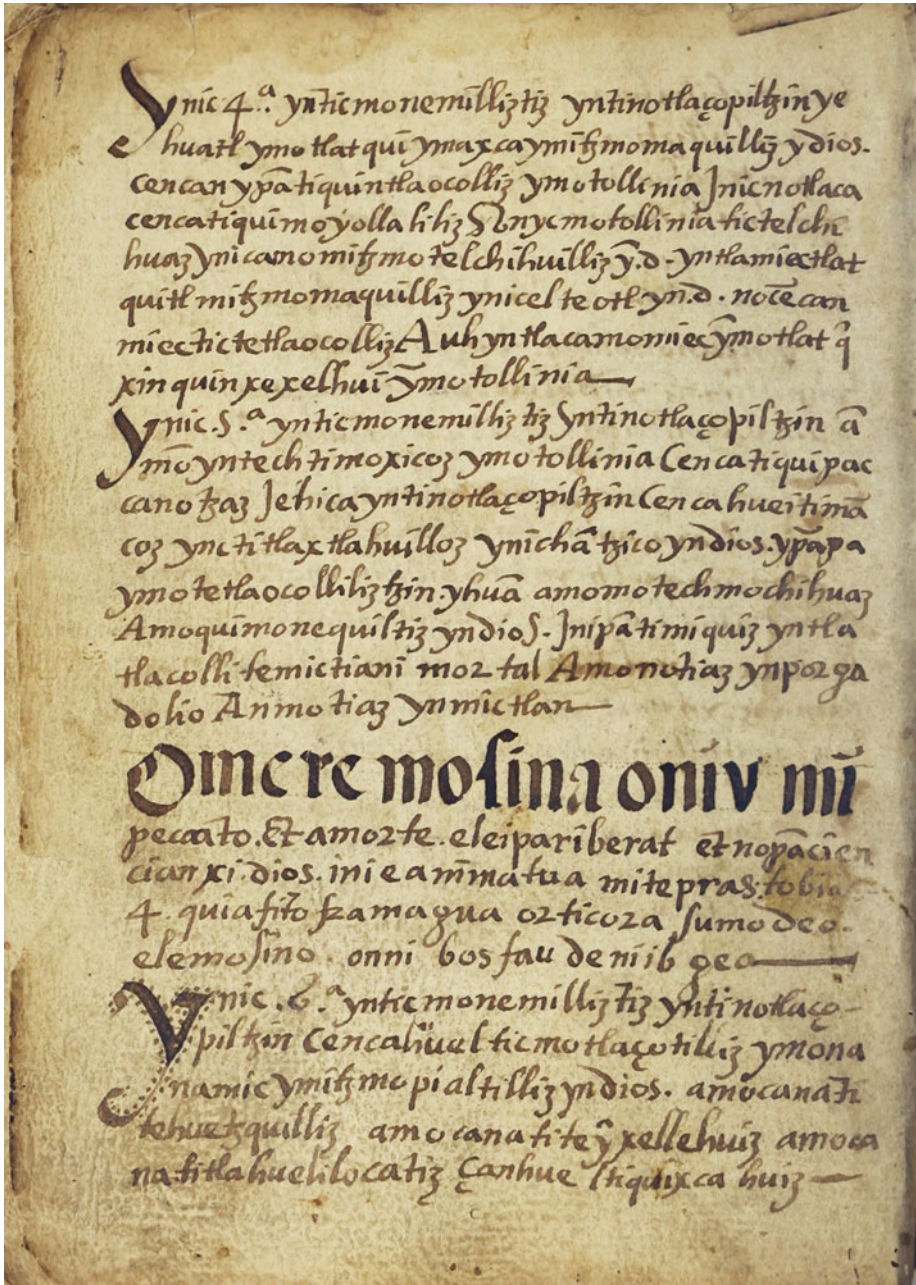 Ynic 4.ª yntic monemilliztiz yntinotlaçopiltzin ye
huatl ymotlatqui ymaxca ymitzmomaquilliz ydios.
cencan ypā tiquintlaocolliz ymotollinia Jnicnotlaca
cencatiquimoyollaliliz Ynycmotollinia tictelchi
huaz ynicamo mitzmotelchihuilliz ȳ.d. yntlamiectlat
quitl mitzmomaquilliz ynicelteotl yn.d. nocēcan
miectictetlaocolliz Auh yntlacamomiec ȳmotlatq̄
xinquinxexelhui ȳmotollinia
Ynic.5.ª yntic monemilliztiz yntinotlaçopiltzin ā
mo yntechtimoxicoz ymotollinia Cencatiquipac
canotzaz Jehica yntinotlaçopiltzin Cencahueitimā
coz ynctitlaxtlahuilloz ynichātzico yndios. ypāpa
ymotetlaocolliliztzin. yhuā amomotechmochihuaz
Amoquimonequiltiz yndios. Jnipātimiquiz yntla
tlacolli temictiani mortal Amonotiaz ynporga
dolio Anmotiaz ynmictlan
Omere mosina oniv mū
peccato. Et amorte. eleipariberat et nopācien
cian xi. dios. inieanimatua mitepras. tobia
4. quiafito framagua orticora sumo deo.
elemosino. onni bos faudeniib geo
Ynic.6.ª yntic monemilliztiz yntinotlaço-
piltzin Cencahuel ticmotlaçotiliz ymona
namic ymitzmopialtilliz yndios. amocanati
tehuetzquilliz amocanatiteȳxellehuiz amoca
natitlahuelilocatiz çanhueltiquixcahuiz